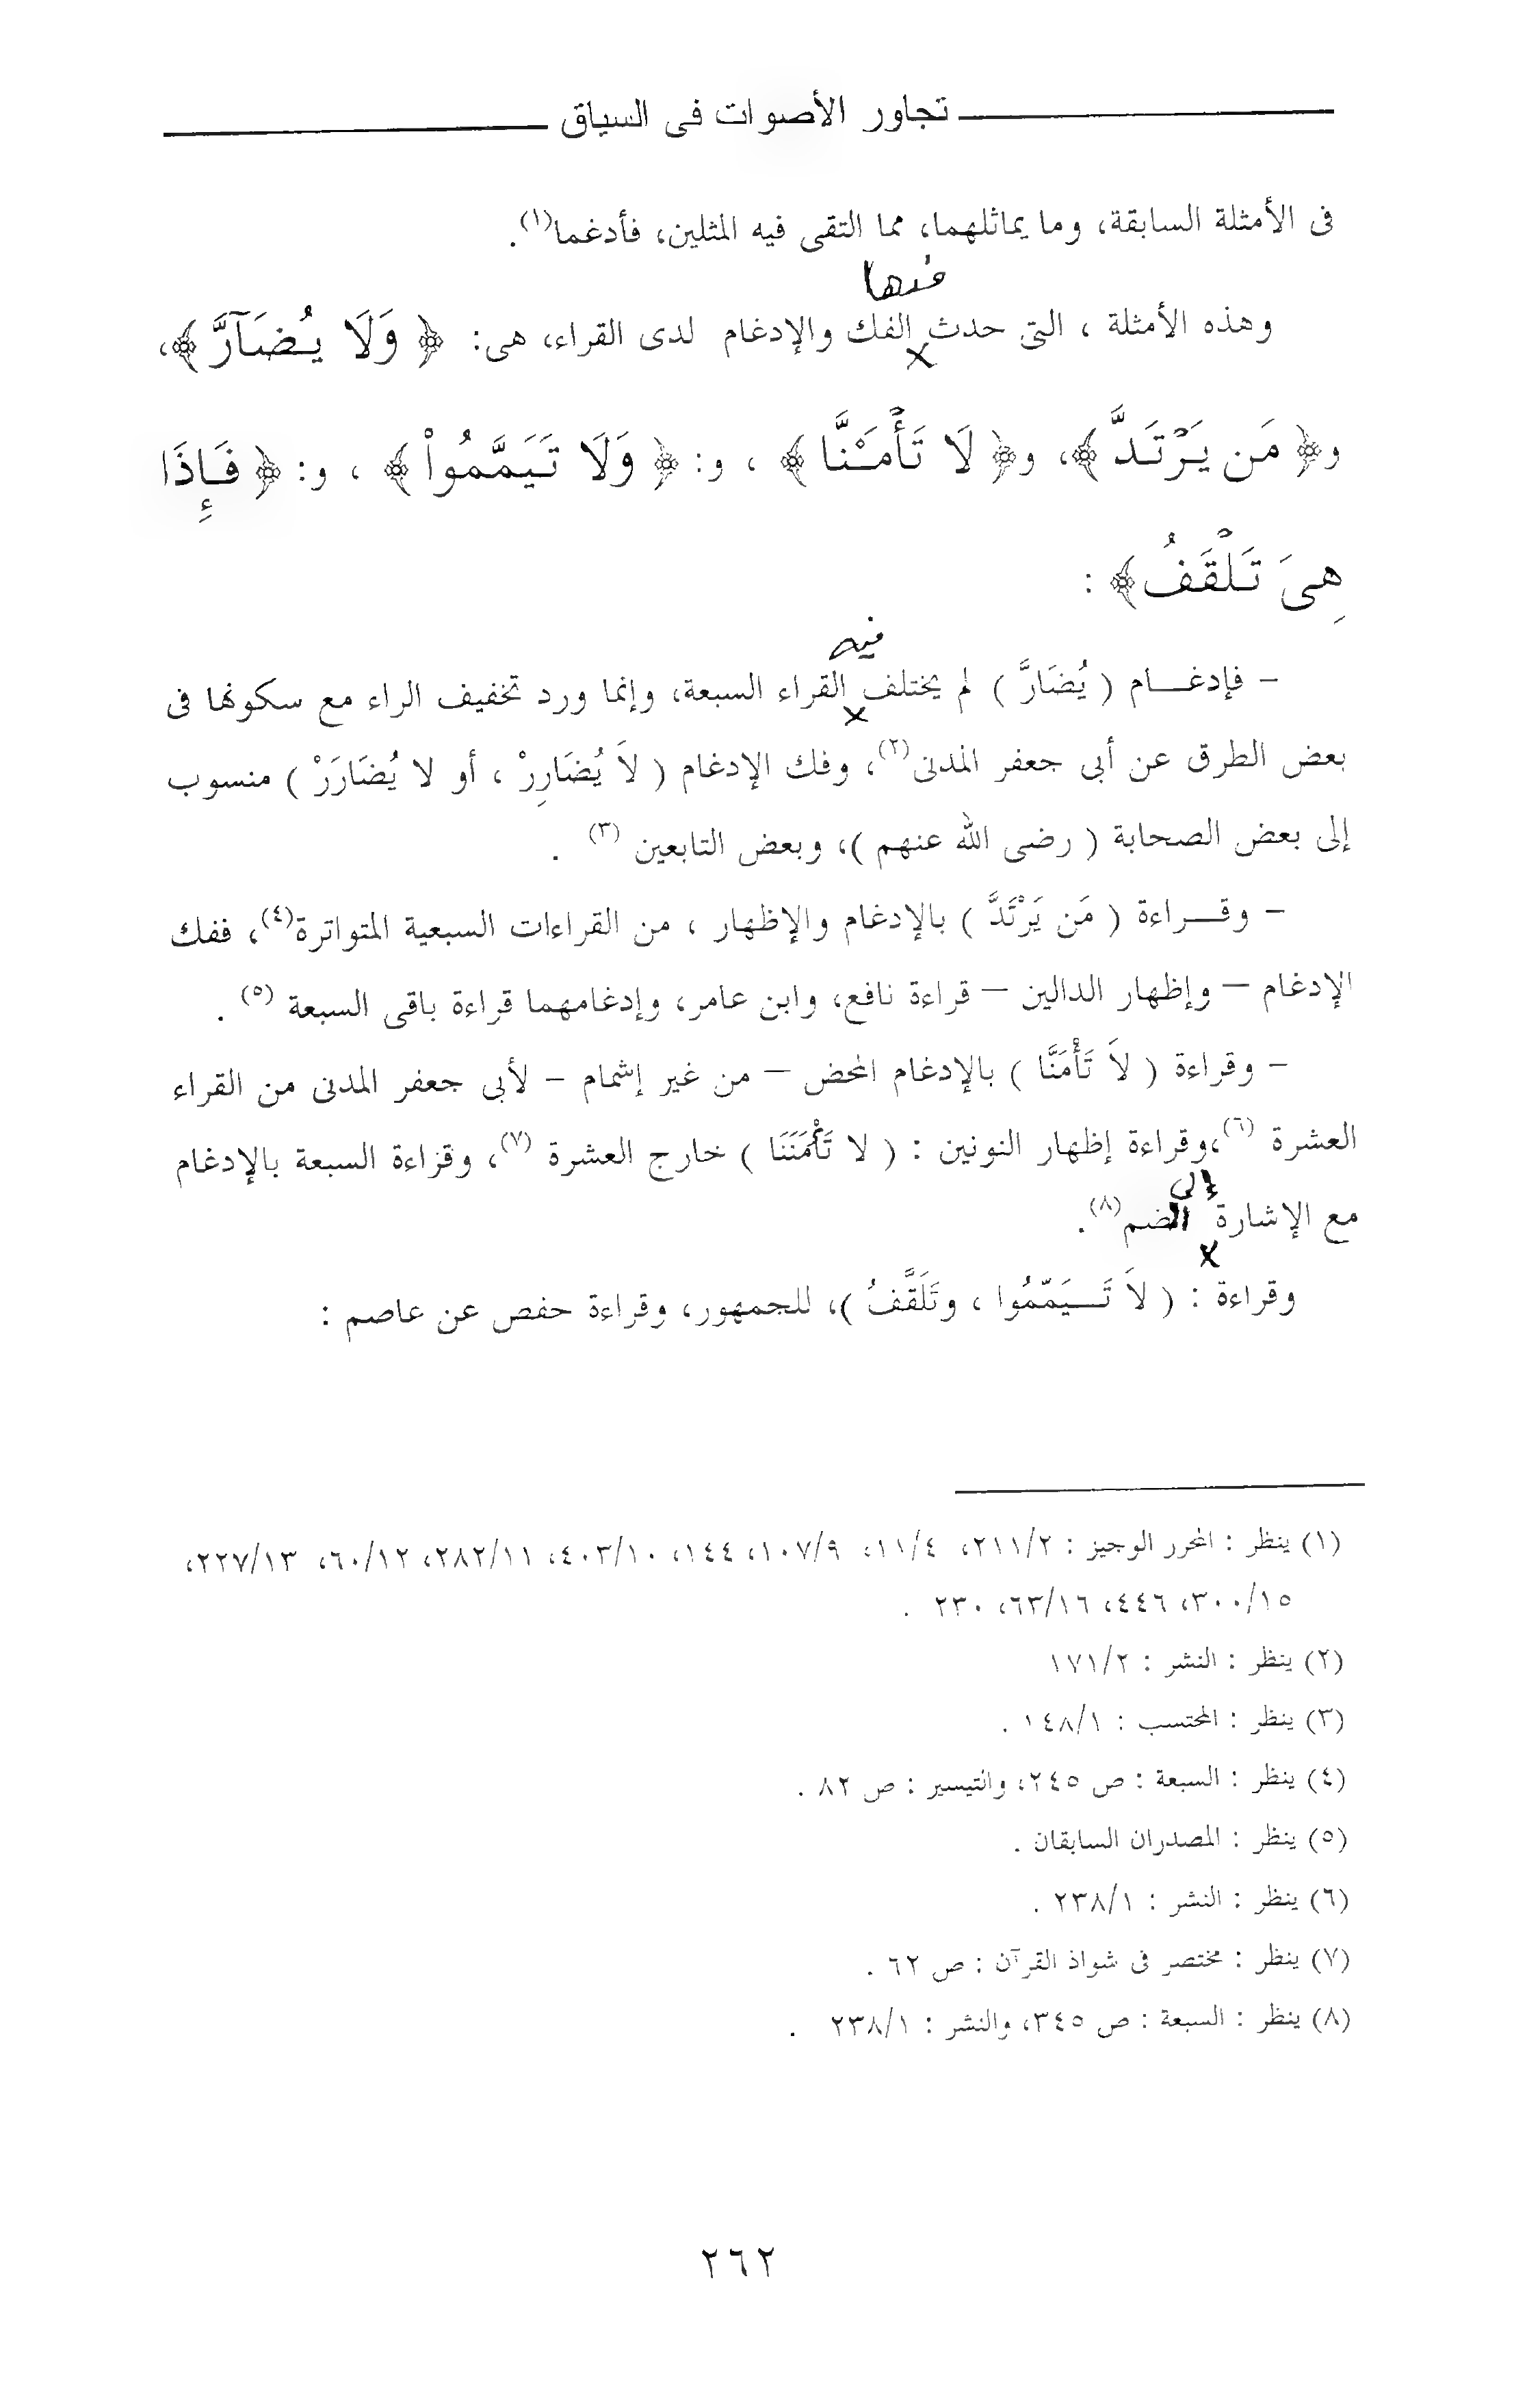 تجاور الأصوات فى السياق
فى الأمثلة السابقة، وما يماثلهما، مما التقى فيه المثلين، فأدغما(١).
فيها
وهذه الأمثلة ، التى حدث الفك والإدغام لدى القراء، هى: ﴿ وَلَا يُضَآرَّ ﴾،
و﴿ مَن يَرْتَدَّ ﴾، و﴿ لَا تَأْمَنَّا ﴾ ، و: ﴿ وَلَا تَيَمَّمُواْ ﴾ ، و: ﴿ فَإِذَا
هِىَ تَلْقَفُ ﴾ :
فيه
- فإدغـــام ( يُضَارَّ ) لم يختلف القراء السبعة، وإنما ورد تخفيف الراء مع سكونها فى
بعض الطرق عن أبى جعفر المدنى(٢)، وفك الإدغام ( لاَ يُضَارِرْ ، أو لا يُضَارَرْ ) منسوب
إلى بعض الصحابة ( رضى الله عنهم )، وبعض التابعين (٣) .
- وقـــراءة ( مَن يَرْتَدَّ ) بالإدغام والإظهار ، من القراءات السبعية المتواترة(٤)، ففك
الإدغام – وإظهار الدالين – قراءة نافع، وابن عامر، وإدغامهما قراءة باقى السبعة (٥) .
- وقراءة ( لاَ تَأْمَنَّا ) بالإدغام المحض – من غير إشمام - لأبى جعفر المدنى من القراء
العشرة (٦)،وقراءة إظهار النونين : ( لا تَأْمَنَنَا ) خارج العشرة (٧)، وقراءة السبعة بالإدغام
إلى
مع الإشارة الضم(٨).
وقراءة : ( لاَ تَـــيَمّمُوا ، وتَلَقَّفُ )، للجمهور، وقراءة حفص عن عاصم :
(١) ينظر : المحرر الوجيز : ٢١١/٢، ١١/٤، ١٠٧/٩، ١٤٤، ٤٠٣/١٠، ٢٨٢/١١، ٦٠/١٢، ٢٢٧/١٣،
٣٠٠/١٥، ٤٤٦، ٦٣/١٦، ٢٣٠ .
(٢) ينظر : النشر : ١٧١/٢
(٣) ينظر : المحتسب : ١٤٨/١ .
(٤) ينظر : السبعة : ص ٢٤٥، والتيسير : ص ٨٢ .
(٥) ينظر : المصدران السابقان .
(٦) ينظر : النشر : ٢٣٨/١ .
(٧) ينظر : مختصر فى شواذ القرآن : ص ٦٢ .
(٨) ينظر : السبعة : ص ٣٤٥، والنشر : ٢٣٨/١ .
٢٦٢